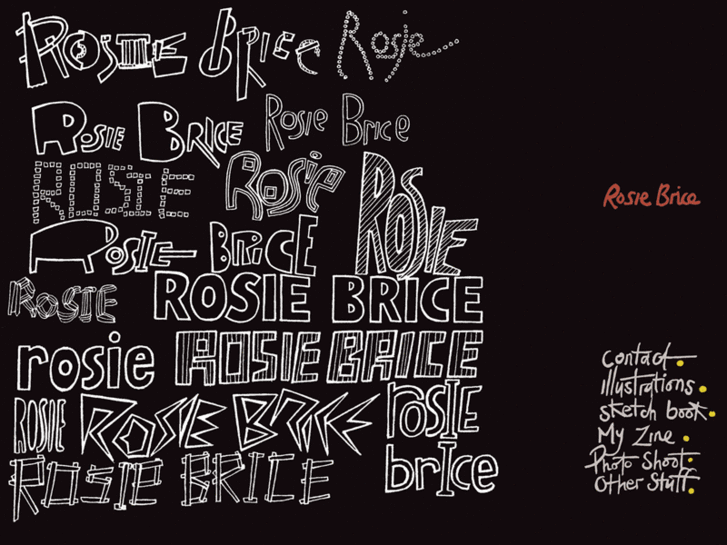 ROSIE BRICE
Rosie
ROSIE BRICE
Rosie Brice
ROSIE
Rosie
ROSIE
ROSIE BRICE
ROSIE
ROSIE BRICE
rosie
ROSIE BRICE
ROSIE
ROSIE BRICE
rosie
brice
ROSIE BRICE
Rosie Brice
contact
illustrations
sketch book
My Zine
Photo Shoot
Other Stuff